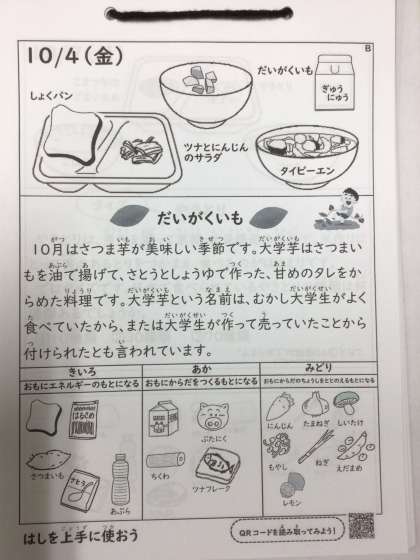 10/4(金)
B
しょくパン
だいがくいも
ぎゅう
にゅう
ツナとにんじん
のサラダ
タイピーエン
だいがくいも
10月はさつま芋が美味しい季節です。大学芋はさつまい
もを油で揚げて、さとうとしょうゆで作った、甘めのタレをか
らめた料理です。大学芋という名前は、むかし大学生がよく
食べていたから、または大学生が作って売っていたことから
付けられたとも言われています。
きいろ
あか
みどり
おもにエネルギーのもとになる
おもにからだをつくるもとになる
おもにからだのちょうしをととのえるもとになる
はるさめ
さつまいも
さとう
あぶら
ぶたにく
ちくわ
ツナフレーク
にんじん
たまねぎ
しいたけ
もやし
ねぎ
えだまめ
レモン
はしを上手に使おう
QRコードを読み取ってみよう!